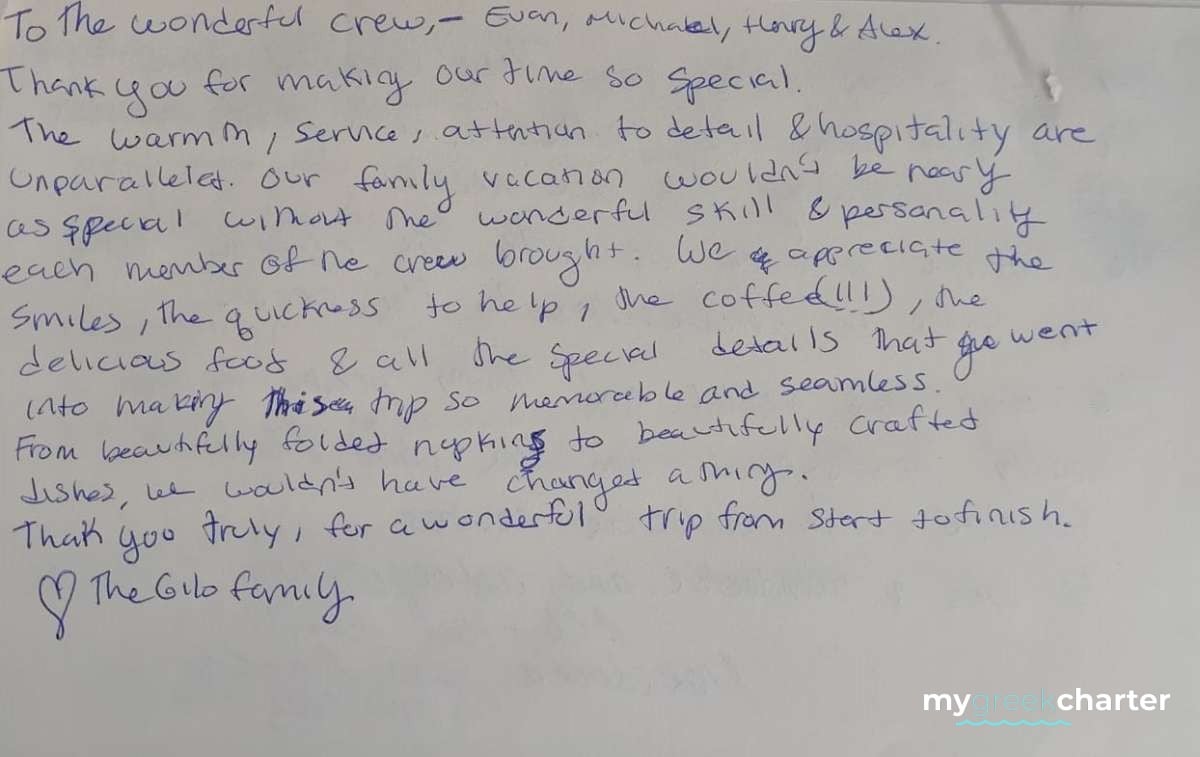 To The wonderful crew,- Evan, Michael, Henry & Alex.
Thank you for making our time so special.
The warmth, service, attention to detail & hospitality are
unparalleled. Our family vacation wouldn't be nearly
as special without the wonderful skill & personality
each member of the crew brought. We appreciate the
smiles, the quickness to help, the coffee(!!!), the
delicious food & all the special details that went
into making this trip so memorable and seamless.
From beautifully folded napkins to beautifully crafted
dishes, we wouldn't have changed a thing.
Thank you truly, for a wonderful trip from start to finish.
♡ The Gilo family
mygreekcharter